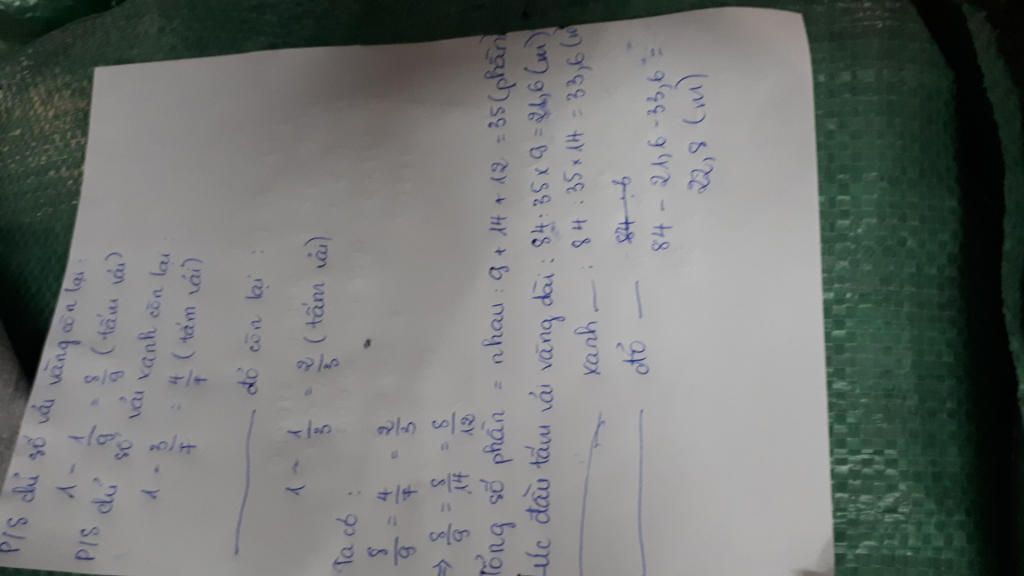 P/S chỉ số vải vàng còn lại :
1 - 1/9 = 8/9 (tấm vải)
P/S chỉ số vải xanh còn lại :
1 - 3/7 = 4/7 (tấm vải)
đỏ còn lại :
1 - 1/3 = 2/3 (tấm vải)
Ta có :
8/9 = 4/7 = 2/3
=> 8/9 = 8/14 = 8/12
Tổng số phần = nhau : 9 + 14 + 12 = 35 (phần)
Lúc đầu tấm vải vàng dài : 84 : 35 x 9 = 21,6 (m)
xanh : 84 : 35 x 14 = 33,6 (m
đỏ
84 - 21,6 - 33,6 =
22,8 (m)